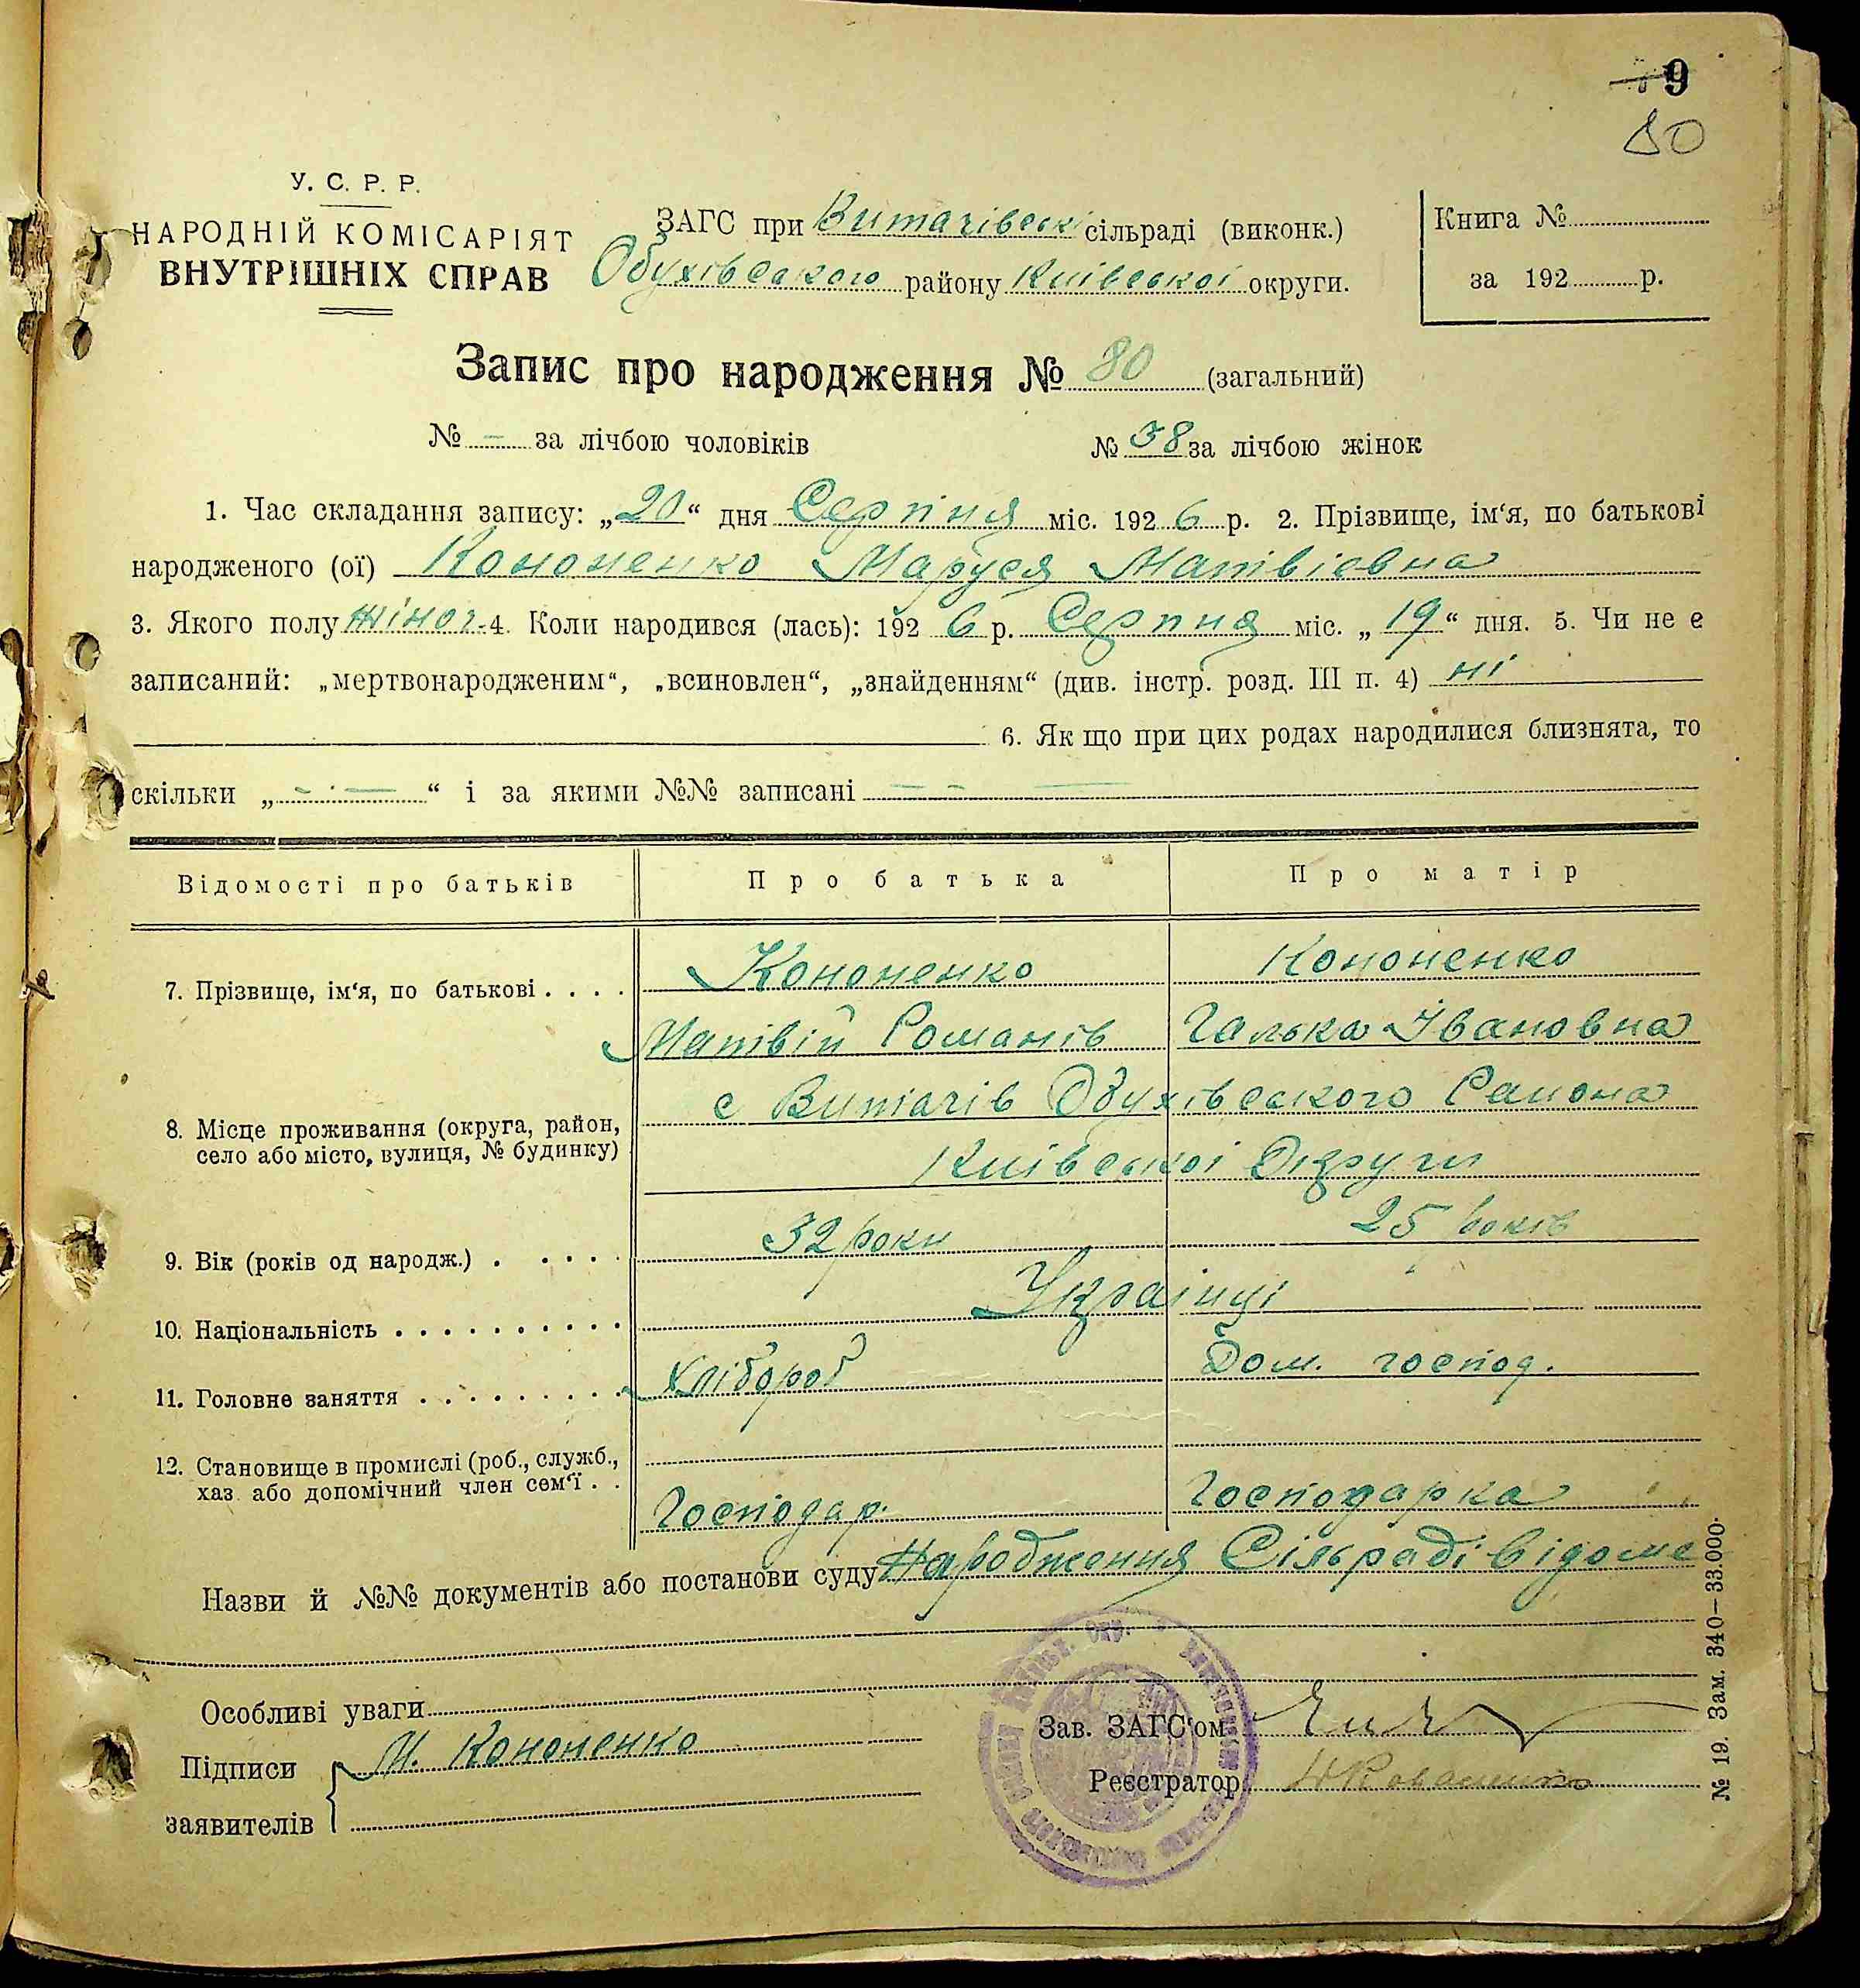 9
80
У. С. Р. Р.
НАРОДНІЙ КОМІСАРІЯТ
ВНУТРІШНІХ СПРАВ
ЗАГС при Витачівські сільраді (виконк.)
Обухівського району Київської округи.
Книга №
за 192 р.
Запис про народження № 80 (загальний)
№ - за лічбою чоловіків № 38 за лічбою жінок
1. Час складання запису: „20“ дня Серпня міс. 1926 р. 2. Прізвище, ім‘я, по батькові
народженого (ої) Кононенко Маруся Матвієвна
3. Якого полу жіноч. 4. Коли народився (лась): 1926 р. Серпня міс. „19“ дня. 5. Чи не є
записаний: „мертвонародженим“, „всиновлен“, „знайденням“ (див. інстр. розд. III п. 4) ні
6. Як що при цих родах народилися близнята, то
скільки „- · —“ і за якими №№ записані — - —
Відомості про батьків Про батька Про матір
7. Прізвище, ім‘я, по батькові . . . . Кононенко Кононенко
Матвій Романів Галька Івановна
8. Місце проживання (округа, район,
село або місто, вулиця, № будинку)
с Витачів Обухівського Района
Київської Округи
9. Вік (років од народж.) . . . . . 32 роки 25 років
10. Національність . . . . . . . . . . Українці
11. Головне заняття . . . . . . . . . Хлібороб Дом. господ.
12. Становище в промислі (роб., служб.,
хаз. або допомічний член сем‘ї . .
Господар. Господарка
Назви й №№ документів або постанови суду Народження Сільраді відоме
Особливі уваги
Підписи
заявителів
М. Кононенко
Зав. ЗАГС‘ом
Реєстратор
№ 19. Зам. 340—33.000.